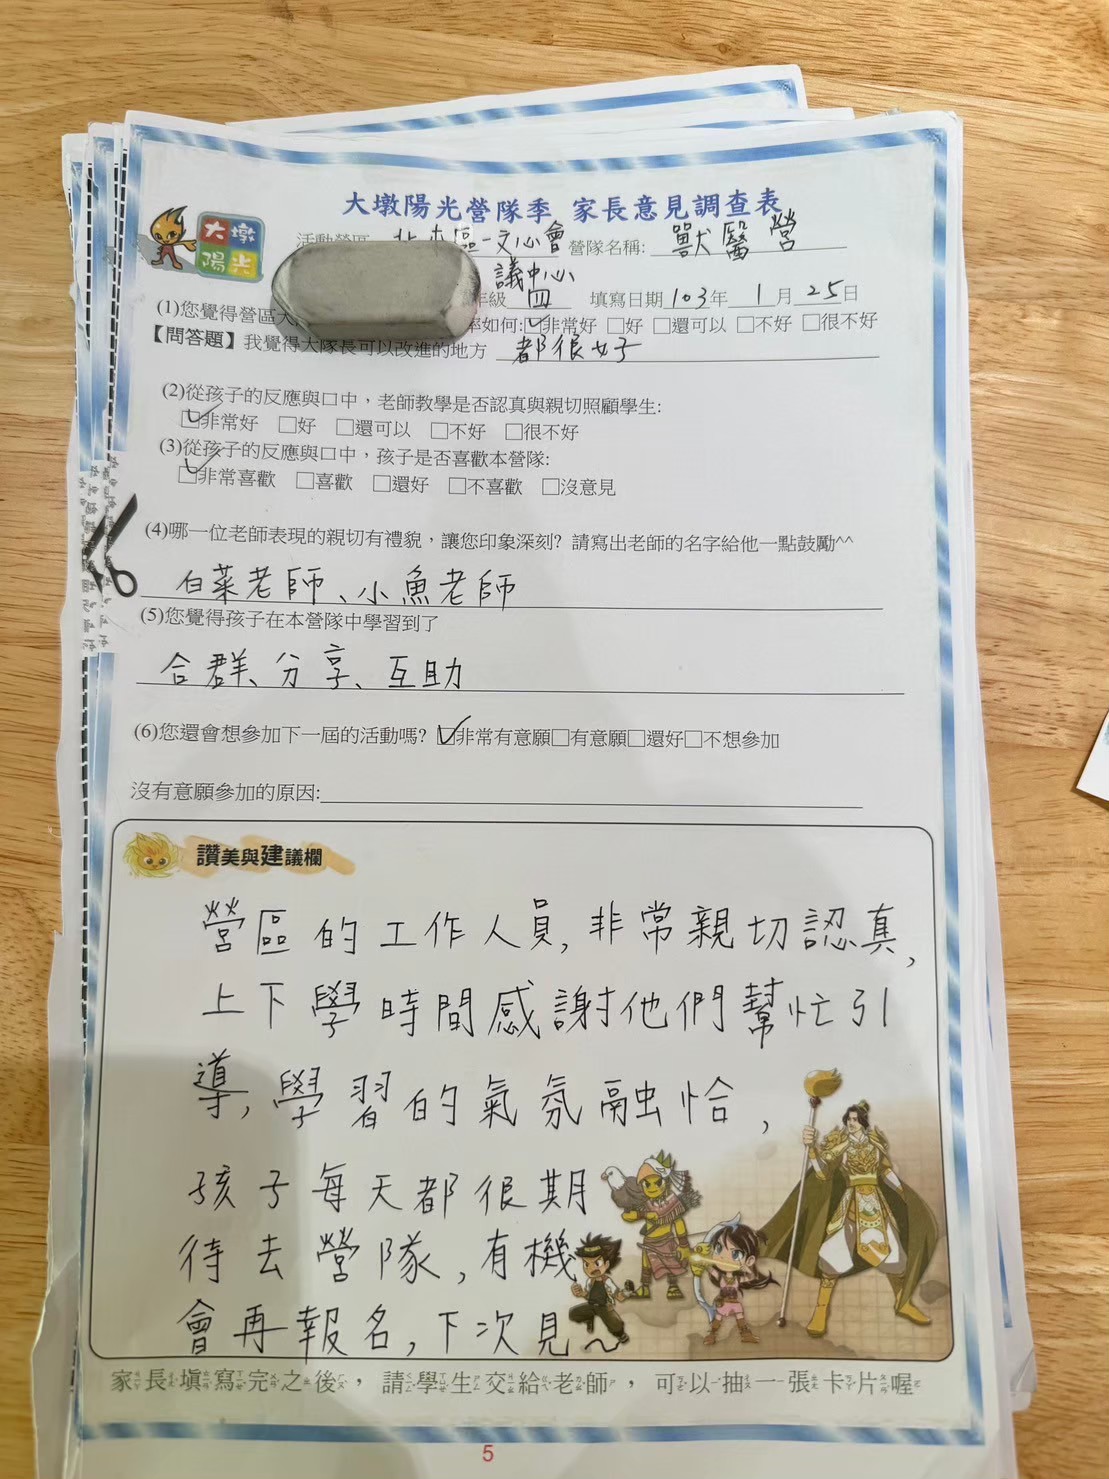 大墩陽光營隊季 家長意見調查表
大墩
陽光
活動營區 北屯區-文心會 營隊名稱: 獸醫營
議中心
年級 四 填寫日期 103年 1月 25日
(1)您覺得營區大 率如何:□非常好 □好 □還可以 □不好 □很不好
【問答題】我覺得大隊長可以改進的地方 都很好
(2)從孩子的反應與口中,老師教學是否認真與親切照顧學生:
□非常好 □好 □還可以 □不好 □很不好
(3)從孩子的反應與口中,孩子是否喜歡本營隊:
□非常喜歡 □喜歡 □還好 □不喜歡 □沒意見
(4)哪一位老師表現的親切有禮貌,讓您印象深刻? 請寫出老師的名字給他一點鼓勵^^
白菜老師、小魚老師
(5)您覺得孩子在本營隊中學習到了
合群、分享、互助
(6)您還會想參加下一屆的活動嗎? □非常有意願□有意願□還好□不想參加
沒有意願參加的原因:
讚美與建議欄
營區的工作人員,非常親切認真,
上下學時間感謝他們幫忙引
導,學習的氣氛融恰,
孩子每天都很期
待去營隊,有機
會再報名,下次見~
家長填寫完之後,請學生交給老師,可以抽一張卡片喔
5